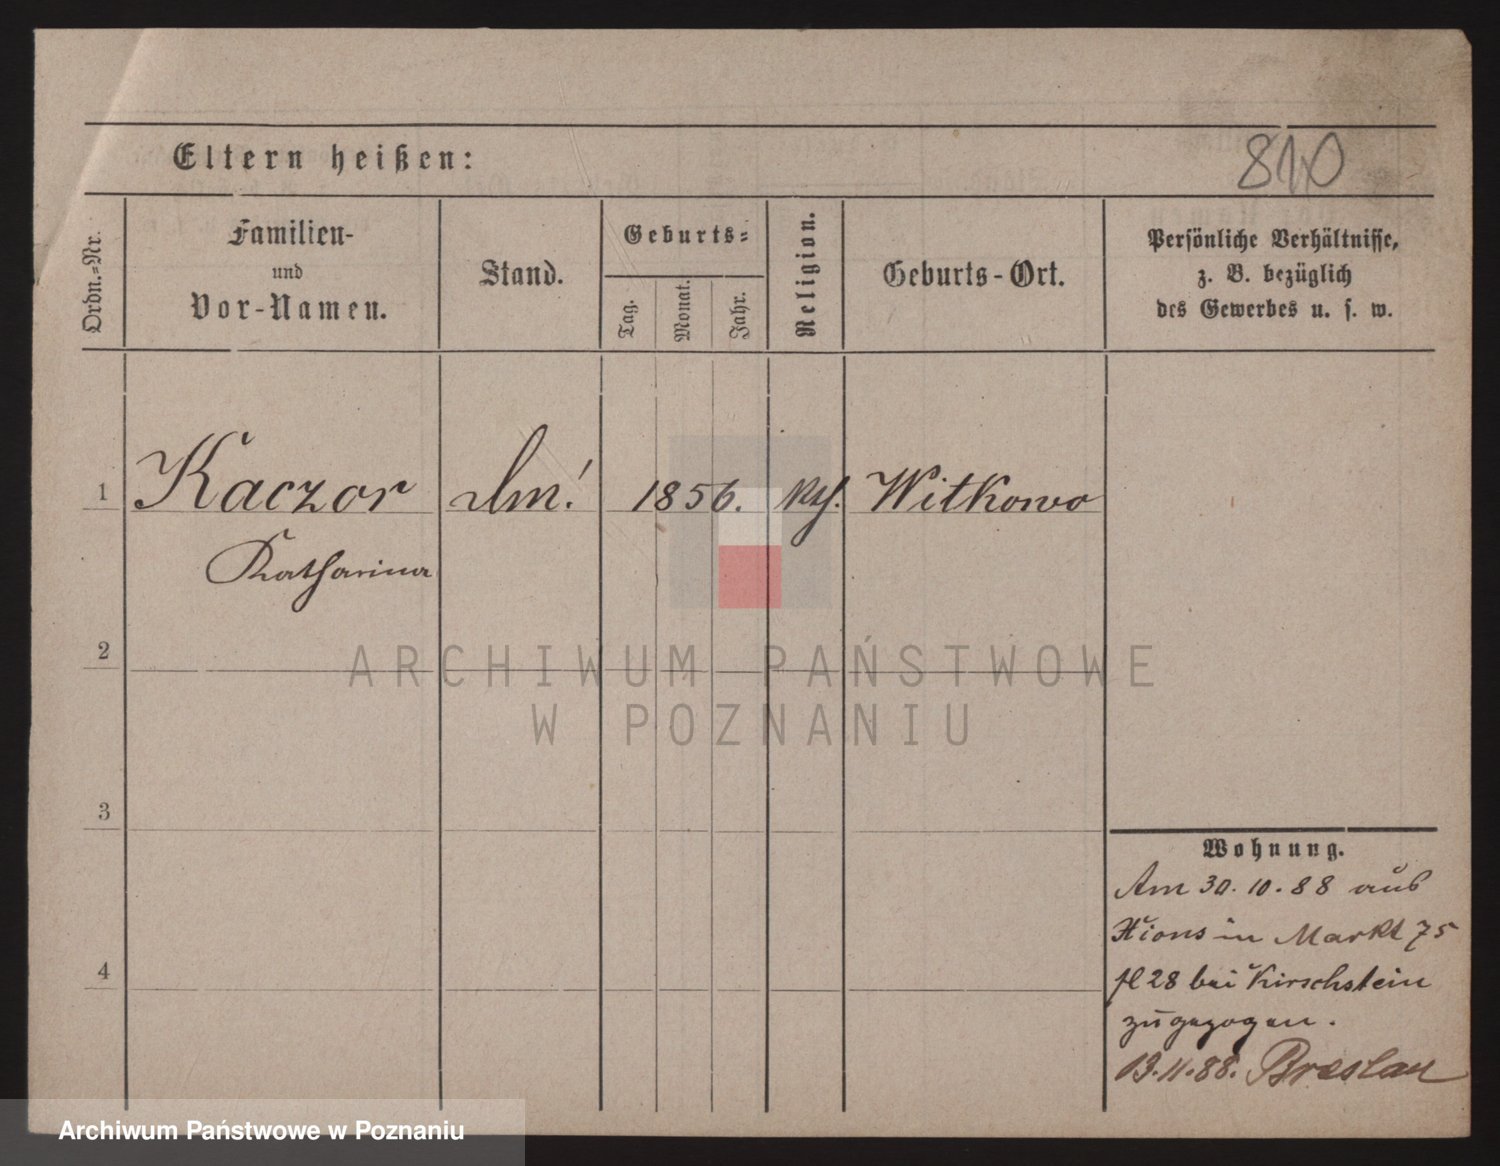 Eltern heißen:
810
Ordn.=Nr.
Familien-
und
Vor-Namen.
Stand.
Geburts=
Tag.
Monat.
Jahr.
Religion.
Geburts-Ort.
Persönliche Verhältnisse,
z. B. bezüglich
des Gewerbes u. s. w.
1
Kaczor
1856.
kth.
Witkowo
Katharina
2
ARCHIWUM PAŃSTWOWE
W POZNANIU
3
Wohnung.
Am 30.10.88 aus
Xions in Markt 75
28 bei Kirschstein
zugezogen.
4
13.11.88. Breslau
Archiwum Państwowe w Poznaniu